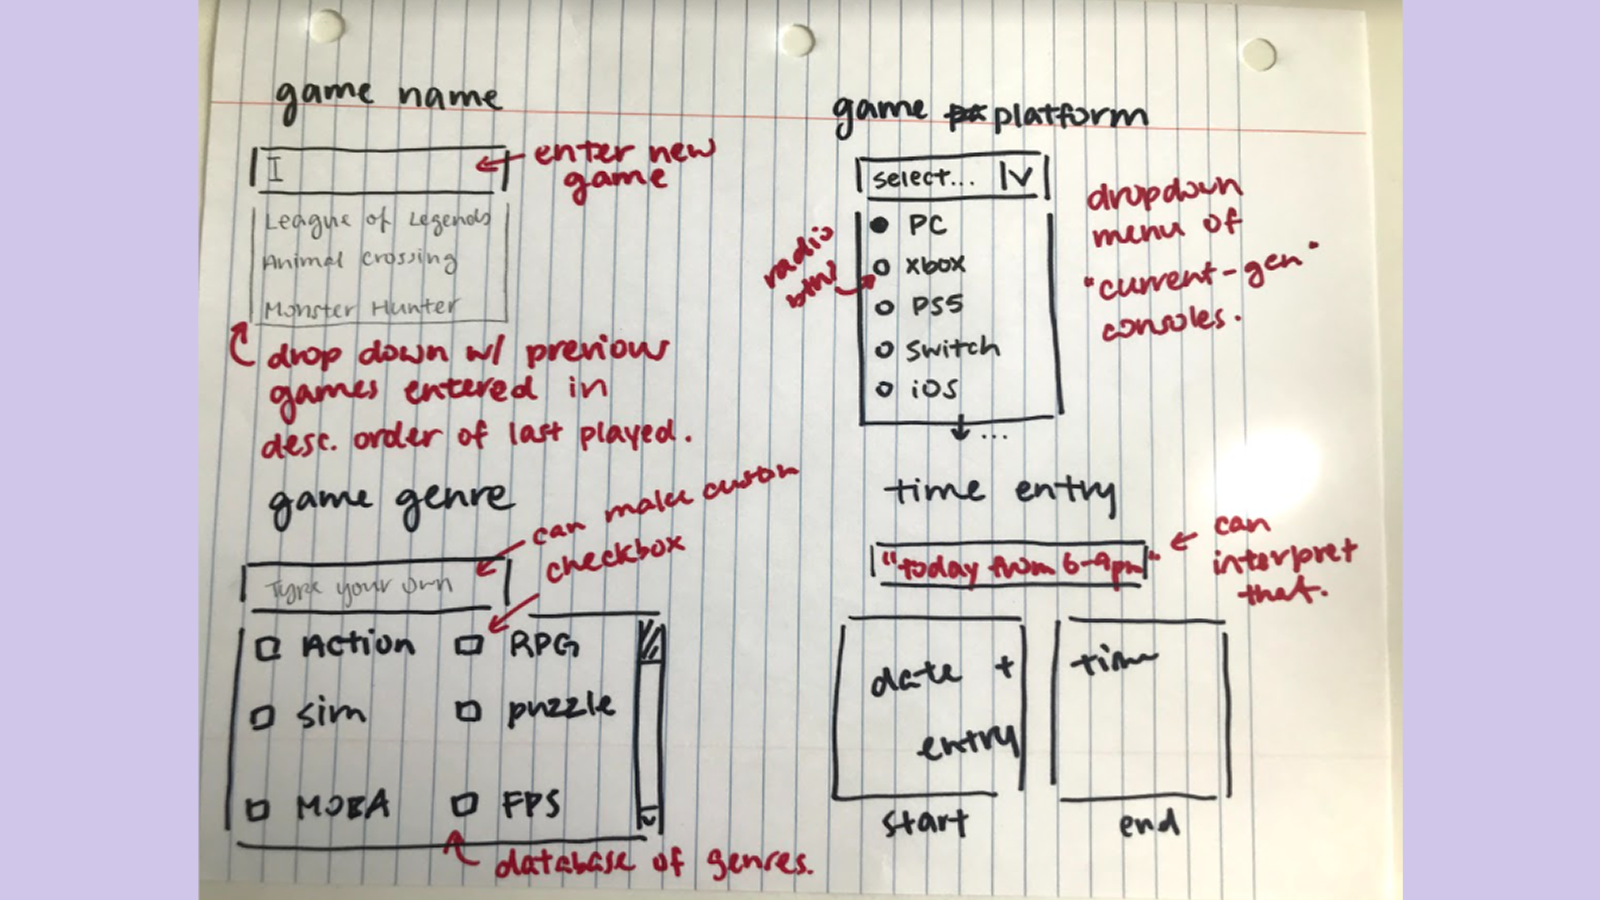 game name
I
enter new
game
League of Legends
Animal crossing
Monster Hunter
drop down w/ previous
games entered in
desc. order of last played.
game genre
can make custom
checkbox
Type your own
Action
RPG
sim
puzzle
MOBA
FPS
database of genres.
game platform
select...
PC
xbox
PS5
switch
iOS
...
radio
btns
dropdown
menu of
"current-gen"
consoles.
time entry
"today from 6-9pm"
can
interpret
that.
date +
entry
start
time
end